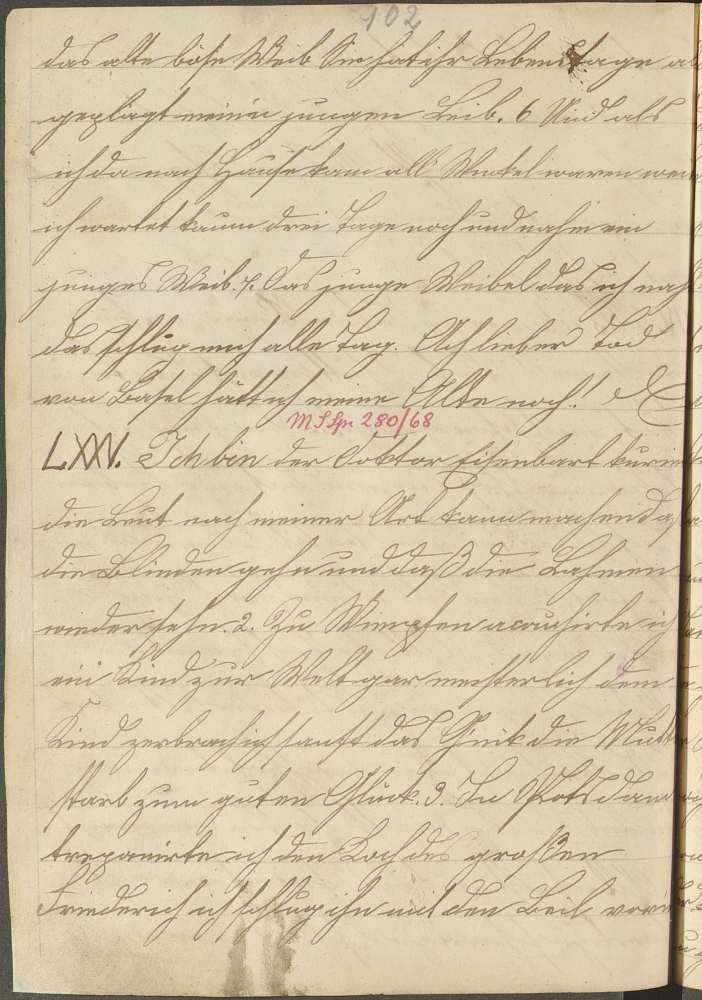 102
das alte böse Weib Sie hat ihr Lebenstage
geplagt meinen jungen Leib. 6 Und als
ich da nach Hause kam all Winkel waren
ich wartet kaum drei Tage noch und nahm ein
junges Weib. 7. Das junge Weibel das ich
das schlug mich alle Tag. Ach lieber Tod
von Basel hätt ich meine Alte noch!
MSSpr 280/68
LXXV. Ich bin der Doktor Eisenbart kurier
die Leut nach meiner Art kann machen daß
die Blinden gehn und daß die Lahmen
wieder sehn. 2. Zu Wimpfen acouchirte ich
ein Kind zur Welt gar meisterlich dem
Kind zerbrach ich sanft das G'nik die Mutter
starb zum guten Glück. 3. In Potsdam
trepanirte ich den Koch des großen
Friederich ich schlug ihn mit den Beil